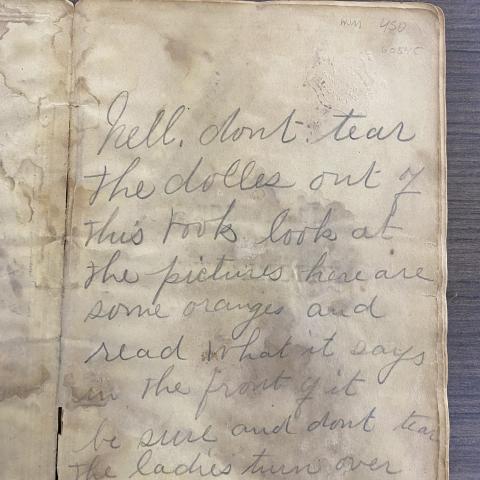 450
6054C
Nell. dont. tear
the dolles out of
this book look at
the pictures here are
some oranges and
read what it says
in the front of it
be sure and dont tear
the ladies turn over